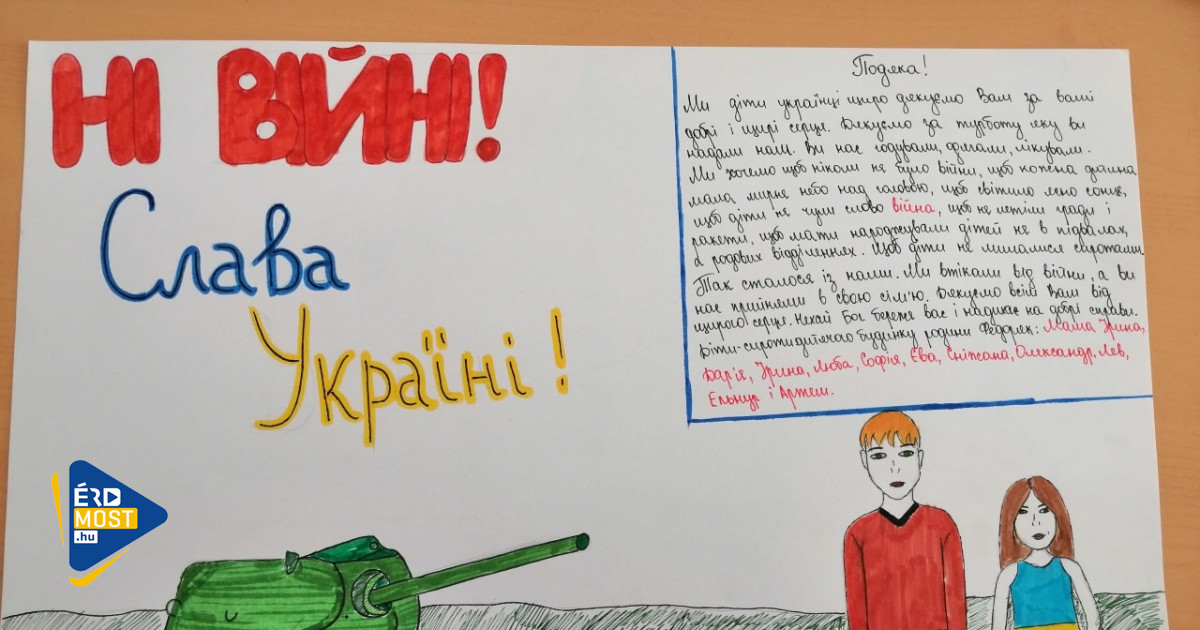 НІ ВІЙНІ!
Слава
Україні!
Подяка!
Ми діти українці щиро дякуємо Вам за ваші
добрі і щирі серця. Дякуємо за турботу яку ви
надали нам. Ви нас годували, дбали, лікували.
Ми хочемо щоб ніколи не було війни, щоб кожна дитина
мала мирне небо над головою, щоб світило ясно сонце,
щоб діти не чули слово війна, щоб не летіли гради і
ракети, щоб мати народжували дітей не в підвалах,
а родових відділеннях. Щоб діти не лишалися сиротами.
Так сталося із нами. Ми втікали від війни, а ви
нас прийняли в свою сім'ю. Дякуємо всім Вам від
щирого серця. Нехай Бог береже вас і надихає на добрі справи.
Діти-сироти дитячого будинку родини Федоряк: Мама Ірина,
Дар'я, Ірина, Люба, Софія, Єва, Сніжана, Олександр, Лев,
Ельнур і Артем.
ÉRD
MOST
.hu